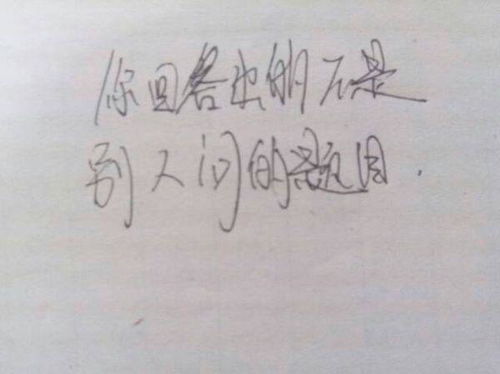 你回答出的不是
别人问的题目.